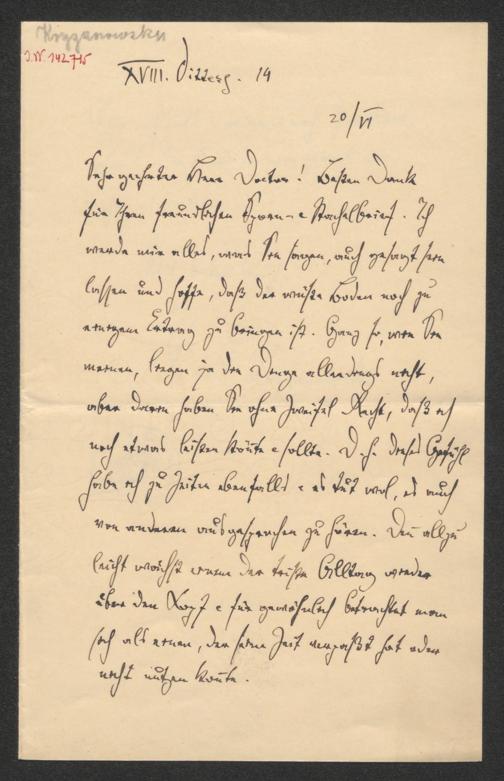 Krzyzanowsky
I.N. 142.715
XVIII. Dittesg. 14
20/VI
Sehr geehrter Herr Doctor! Besten Dank
für Ihren freundlichen Sporn- & Stachelbrief. Ich
werde mir alles, was Sie sagen, auch gesagt sein
lassen und hoffe, daß der wüste Boden noch zu
einigem Ertrag zu bringen ist. Ganz so, wie Sie
meinen, liegen ja die Dinge allerdings nicht,
aber darin haben Sie ohne Zweifel Recht, daß ich
noch etwas leisten könte & sollte. D. h. dieses Gefühl
habe ich zu Zeiten ebenfalls & es tut wol, es auch
von anderen ausgesprochen zu hören. Den allzu
leicht wächst einem der triste Alltag wieder
über den Kopf & für gewöhnlich betrachtet man
sich als einen, der seine Zeit verpaßt hat oder
nicht nutzen konte.